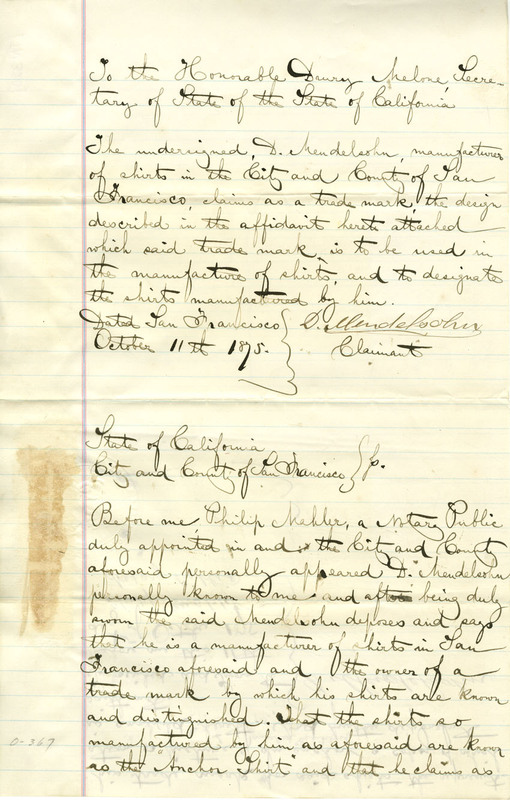 To the Honorable Drury Melone, Secre-
tary of State of the State of California
The undersigned, D. Mendelsohn, manufacturer
of shirts in the City and County of San
Francisco, claims as a trade mark, the design
described in the affidavit hereto attached
which said trade mark, is to be used in
the manufacture of shirts, and to designate
the shirts manufactured by him.
Dated San Francisco
October 11th 1875.
D. Mendelsohn
Claimant
State of California
City and County of San Francisco
Before me Philip Mahler, a Notary Public
duly appointed in and the City and County
aforesaid personally appeared D. Mendelsohn
personally known to me and after being duly
sworn the said Mendelsohn deposes and says
that he is a manufacturer of shirts in San
Francisco aforesaid and the owner of a
trade mark by which his shirts are known
and distinguished. That the shirts so
manufactured by him as aforesaid are known
as the "Anchor Shirt" and that he claims as
0-367